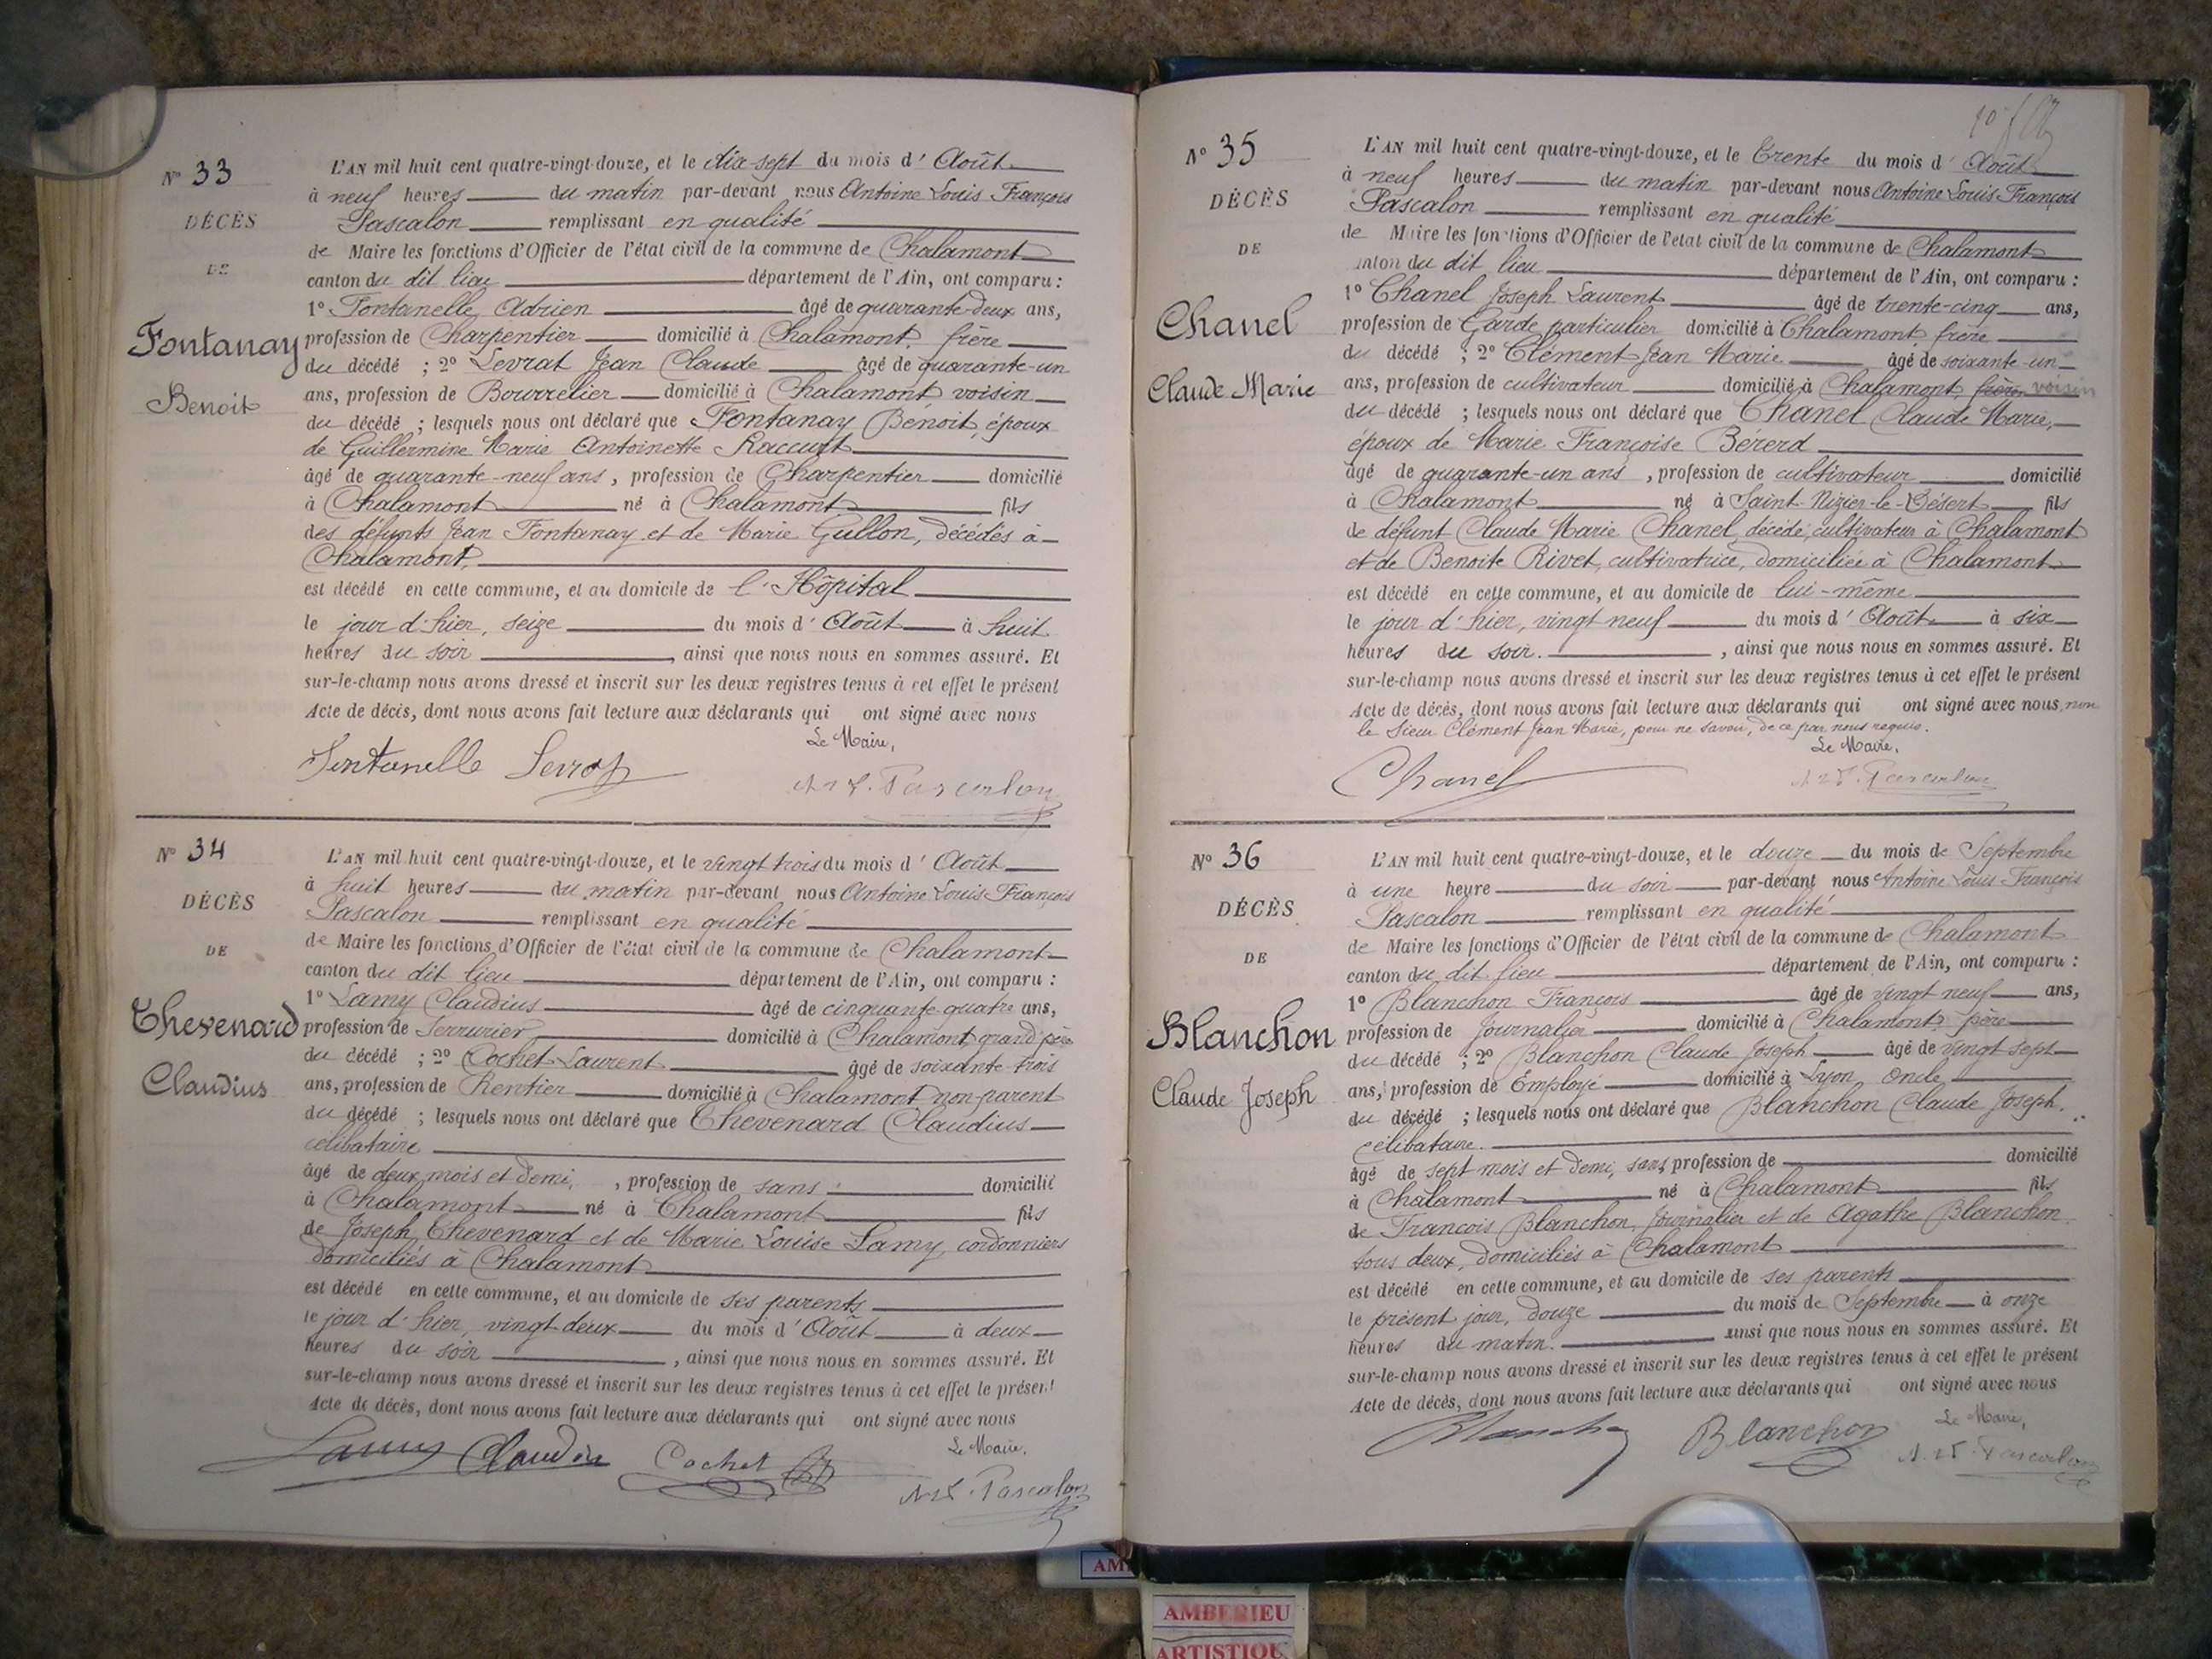 N° 33
DÉCÈS
DE
Fontanay
Benoit
L'AN mil huit cent quatre-vingt-douze, et le dix-sept du mois d' Août
à neuf heures du matin par-devant nous Antoine Louis François
Pascalon remplissant en qualité
de Maire les fonctions d'Officier de l'état civil de la commune de Chalamont
canton du dit lieu département de l'Ain, ont comparu :
1° Fontanelle, Adrien âgé de quarante-deux ans,
profession de Charpentier domicilié à Chalamont, frère
du décédé ; 2° Levrat Jean Claude âgé de quarante-un
ans, profession de Bourrelier domicilié à Chalamont voisin
du décédé ; lesquels nous ont déclaré que Fontanay Benoit, époux
de Guillermine Marie Antoinette Raccurt
âgé de quarante-neuf ans, profession de Charpentier domicilié
à Chalamont né à Chalamont fils
des défunts Jean Fontanay et de Marie Gullon, décédés à
Chalamont,
est décédé en cette commune, et au domicile de l'Hôpital
le jour d'hier, seize du mois d' Août à huit
heures du soir, ainsi que nous nous en sommes assuré. Et
sur-le-champ nous avons dressé et inscrit sur les deux registres tenus à cet effet le présent
Acte de décès, dont nous avons fait lecture aux déclarants qui ont signé avec nous
Le Maire,
Fontanelle Levrat Pascalon
N° 34
DÉCÈS
DE
Thevenard
Claudius
L'AN mil huit cent quatre-vingt-douze, et le vingt trois du mois d' Août
à huit heures du matin par-devant nous Antoine Louis François
Pascalon remplissant en qualité
de Maire les fonctions d'Officier de l'état civil de la commune de Chalamont
canton du dit lieu département de l'Ain, ont comparu :
1° Lamy Claudius âgé de cinquante-quatre ans,
profession de Serrurier domicilié à Chalamont, grand père
du décédé ; 2° Cochet Laurent âgé de soixante-trois
ans, profession de Rentier domicilié à Chalamont non parent
du décédé ; lesquels nous ont déclaré que Thevenard Claudius
célibataire
âgé de deux mois et demi, , profession de sans domicilié
à Chalamont né à Chalamont fils
de Joseph Thevenard et de Marie Louise Lamy, cordonniers
domiciliés à Chalamont
est décédé en cette commune, et au domicile de ses parents
le jour d'hier, vingt deux du mois d' Août à deux
heures du soir, ainsi que nous nous en sommes assuré. Et
sur-le-champ nous avons dressé et inscrit sur les deux registres tenus à cet effet le présent
Acte de décès, dont nous avons fait lecture aux déclarants qui ont signé avec nous
Le Maire,
Lamy Claudius Cochet Pascalon
N° 35
DÉCÈS
DE
Chanel
Claude Marie
L'AN mil huit cent quatre-vingt-douze, et le trente du mois d' Août
à neuf heures du matin par-devant nous Antoine Louis François
Pascalon remplissant en qualité
de Maire les fonctions d'Officier de l'état civil de la commune de Chalamont
canton du dit lieu département de l'Ain, ont comparu :
1° Chanel Joseph Laurent âgé de trente-cinq ans,
profession de Garde particulier domicilié à Chalamont frère
du décédé ; 2° Clément Jean Marie âgé de soixante-un
ans, profession de cultivateur domicilié à Chalamont, frère voisin
du décédé ; lesquels nous ont déclaré que Chanel Claude Marie,
époux de Marie Françoise Bérerd
âgé de quarante-un ans, profession de cultivateur domicilié
à Chalamont né à Saint-Nizier-le-Désert fils
de défunt Claude Marie Chanel, décédé, cultivateur à Chalamont
et de Benoite Rivet, cultivatrice, domiciliée à Chalamont
est décédé en cette commune, et au domicile de lui-même
le jour d'hier, vingt neuf du mois d' Août à six
heures du soir., ainsi que nous nous en sommes assuré. Et
sur-le-champ nous avons dressé et inscrit sur les deux registres tenus à cet effet le présent
Acte de décès, dont nous avons fait lecture aux déclarants qui ont signé avec nous, non
le Sieur Clément Jean Marie, pour ne savoir, de ce par nous requis.
Le Maire,
Chanel Pascalon
N° 36
DÉCÈS
DE
Blanchon
Claude Joseph
L'AN mil huit cent quatre-vingt-douze, et le douze du mois de Septembre
à une heure du soir par-devant nous Antoine Louis François
Pascalon remplissant en qualité
de Maire les fonctions d'Officier de l'état civil de la commune de Chalamont
canton du dit lieu département de l'Ain, ont comparu :
1° Blanchon François âgé de vingt neuf ans,
profession de Journalier domicilié à Chalamont, père
du décédé ; 2° Blanchon Claude Joseph âgé de vingt sept
ans, profession de Employé domicilié à Lyon, oncle
du décédé ; lesquels nous ont déclaré que Blanchon Claude Joseph.
célibataire.
âgé de sept mois et demi, sans profession de domicilié
à Chalamont né à Chalamont fils
de François Blanchon, Journalier et de Agathe Blanchon
tous deux, domiciliés à Chalamont
est décédé en cette commune, et au domicile de ses parents
le présent jour, douze du mois de Septembre à onze
heures du matin. ainsi que nous nous en sommes assuré. Et
sur-le-champ nous avons dressé et inscrit sur les deux registres tenus à cet effet le présent
Acte de décès, dont nous avons fait lecture aux déclarants qui ont signé avec nous
Le Maire,
Blanchon Blanchon Pascalon
AMBERIEU
ARTISTIQU